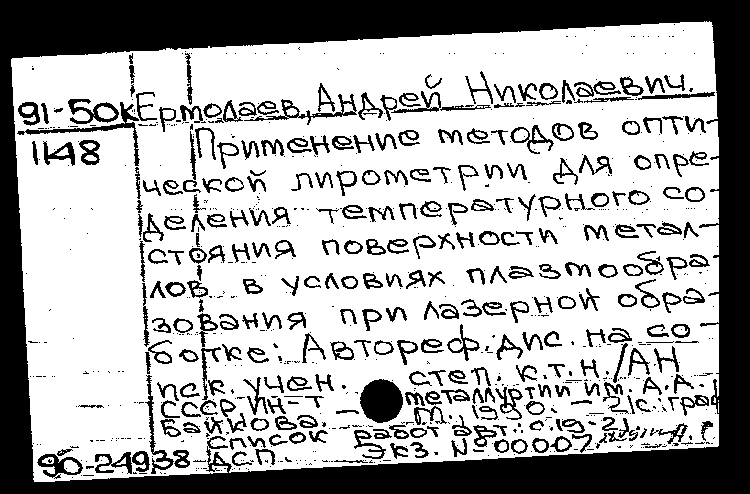 91-50к Ермолаев, Андрей Николаевич.
1148 Применение методов опти-
ческой пирометрии для опре-
деления температурного со-
стояния поверхности метал-
лов в условиях плазмообра-
зования при лазерной обра-
ботке: Автореф. дис. на со-
иск. учен. степ. к.т.н. / АН
СССР, Ин-т металлургии им. А.А.
Байкова. — М., 1990. — 21с. граф
Список работ авт.: с.19-21
90-24938 ДСП. Экз. № 00007.